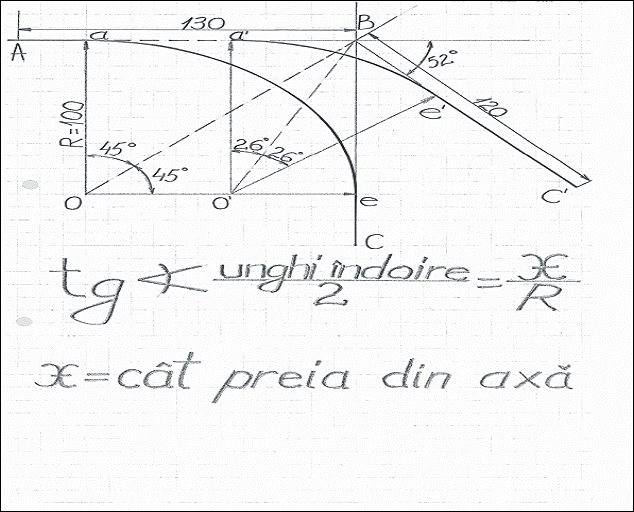 130
B
A a a'
52°
120
R=100
e'
45°
26° 26°
45°
O O' e C'
C
tg ∢ unghi îndoire / 2 = x / R
x = cât preia din axă